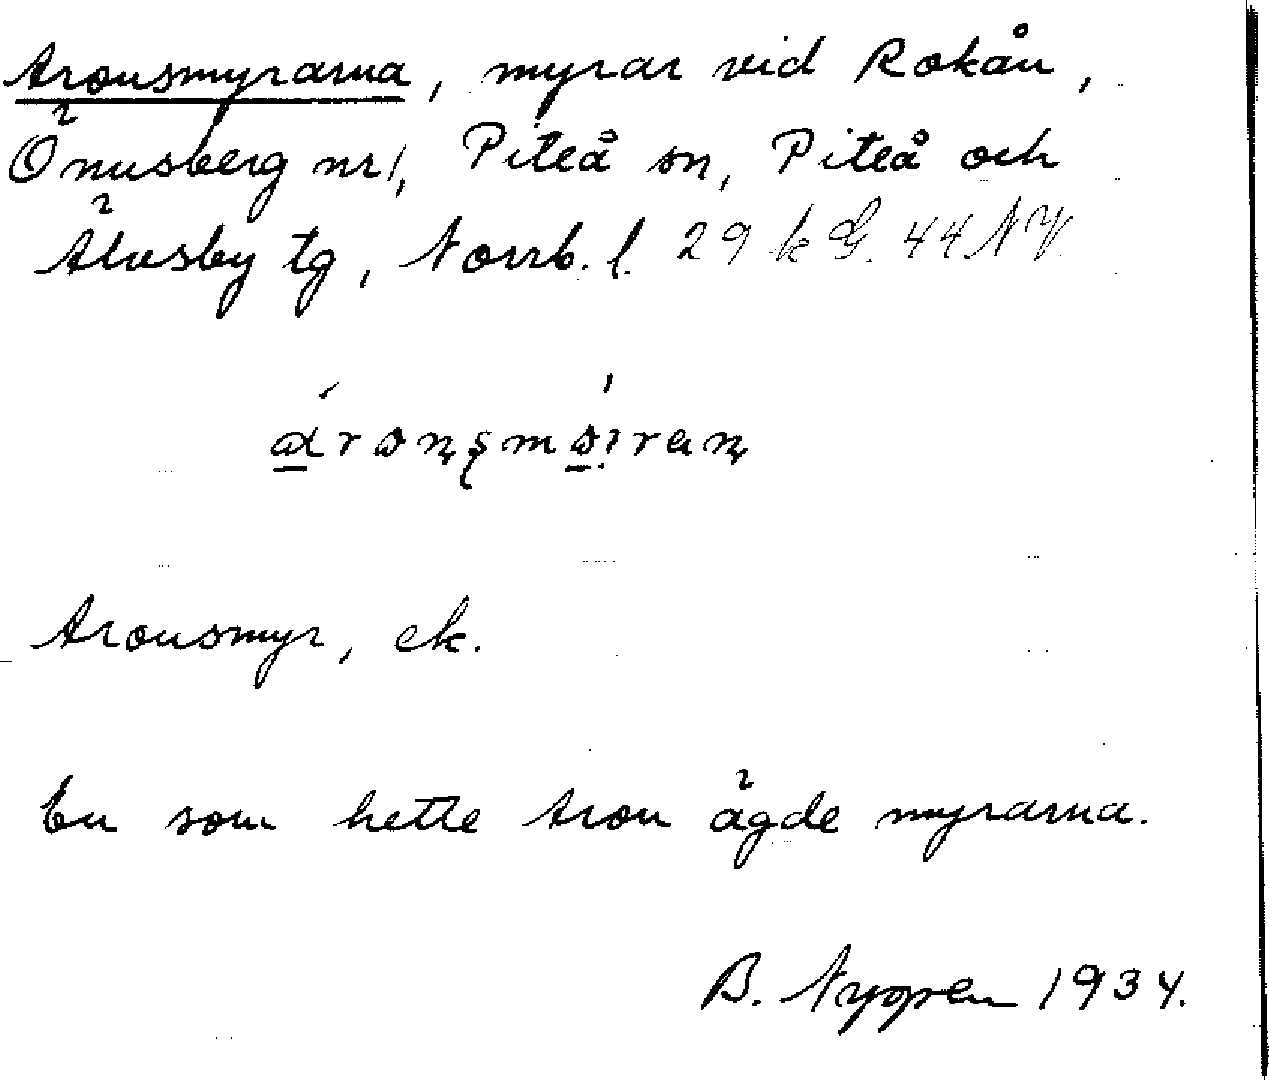 Aronsmyrarna, myrar vid Rokån,
Önusberg nr 1, Piteå sn, Piteå och
Älvsby tg, Norrb. l. 29 k G. 44 NV
Aronsmyr, ek.
En som hette Aron ägde myrarna.
B. Nygren 1934.